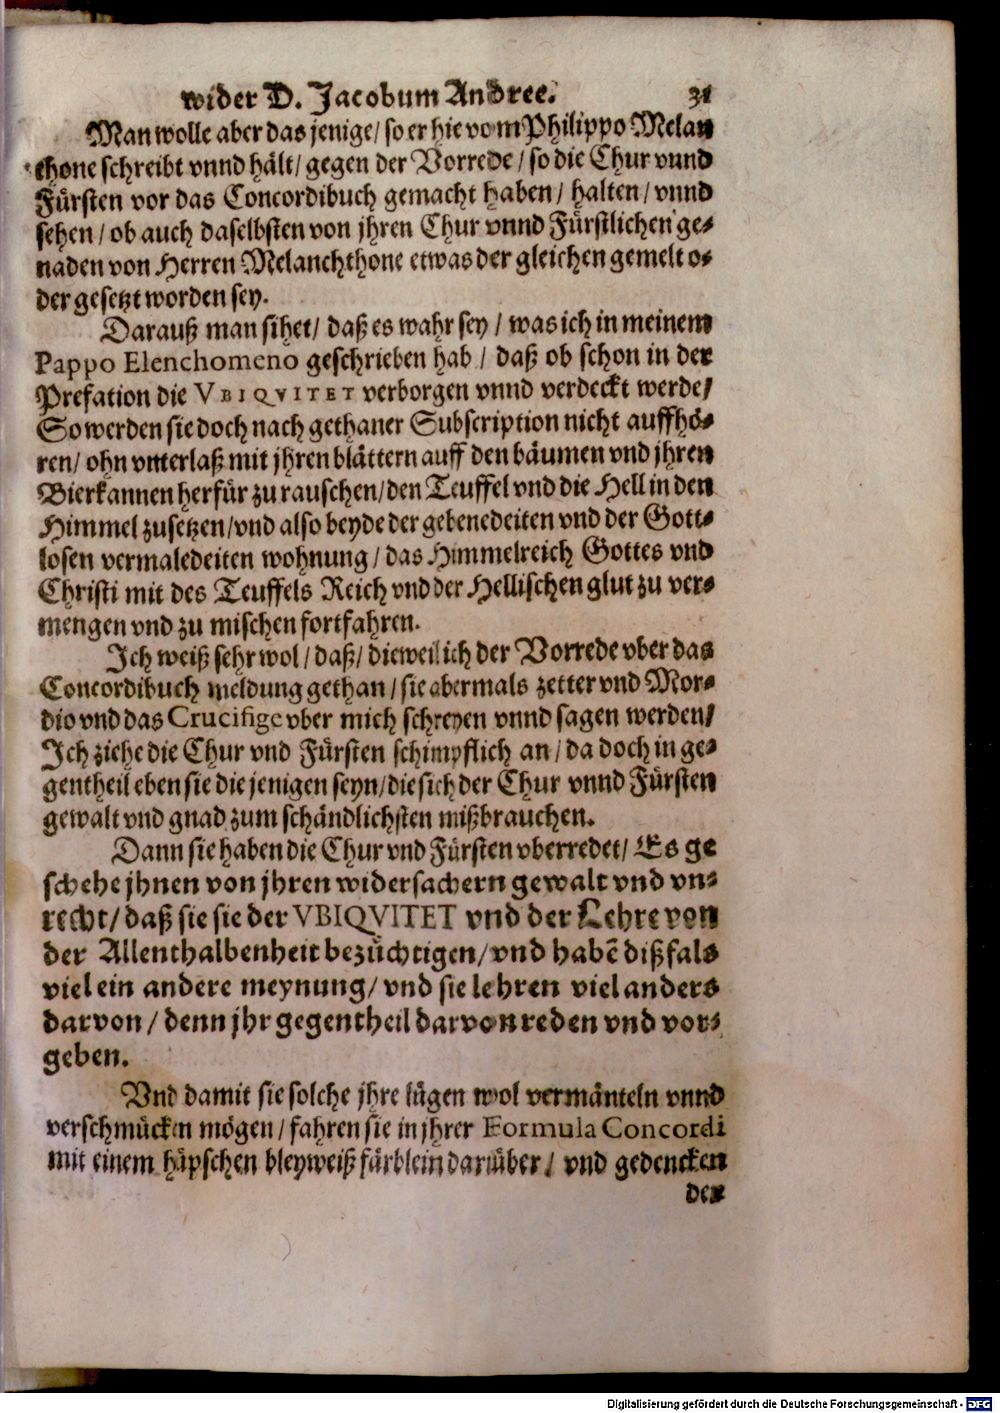 wider D. Jacobum Andree. 31
Man wolle aber das jenige/ so er hie vom Philippo Melan
chone schreibt vnnd hält/ gegen der Vorrede/ so die Chur vnnd
Fürsten vor das Concordibuch gemacht haben/ halten/ vnnd
sehen/ ob auch daselbsten von jhren Chur vnnd Fürstlichen ge-
naden von Herren Melanchthone etwas der gleichen gemelt o-
der gesetzt worden sey.
Darauß man sihet/ daß es wahr sey/ was ich in meinem
Pappo Elenchomeno geschrieben hab/ daß ob schon in der
Prefation die VBIQVITET verborgen vnnd verdeckt werde/
So werden sie doch nach gethaner Subscription nicht auffhö-
ren/ ohn vnterlaß mit jhren blättern auff den bäumen vnd jhren
Bierkannen herfür zu rauschen/ den Teuffel vnd die Hell in den
Himmel zusetzen/ vnd also beyde der gebenedeiten vnd der Gott-
losen vermaledeiten wohnung/ das Himmelreich Gottes vnd
Christi mit des Teuffels Reich vnd der Hellischen glut zu ver-
mengen vnd zu mischen fortfahren.
Ich weiß sehr wol/ daß/ dieweil ich der Vorrede vber das
Concordibuch meldung gethan/ sie abermals zetter vnd Mor-
dio vnd das Crucifige vber mich schreyen vnnd sagen werden/
Ich ziehe die Chur vnd Fürsten schimpflich an/ da doch in ge-
gentheil eben sie die jenigen seyn/ die sich der Chur vnnd Fürsten
gewalt vnd gnad zum schändlichsten mißbrauchen.
Dann sie haben die Chur vnd Fürsten vberredet/ Es ge
schehe jhnen von jhren widersachern gewalt vnd vn-
recht/ daß sie sie der VBIQVITET vnd der Lehre von
der Allenthalbenheit bezüchtigen/ vnd habē dißfals
viel ein andere meynung/ vnd sie lehren viel anders
darvon/ denn jhr gegentheil darvon reden vnd vor-
geben.
Vnd damit sie solche jhre lügen wol vermänteln vnnd
verschmücken mögen/ fahren sie in jhrer Formula Concordi
mit einem häpschen bleyweiß färblein darüber/ vnd gedencken
der
Digitalisierung gefördert durch die Deutsche Forschungsgemeinschaft - DFG